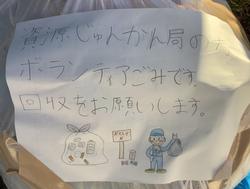 資源じゅんかん局の
ボランティアごみです。
回収をお願いします。